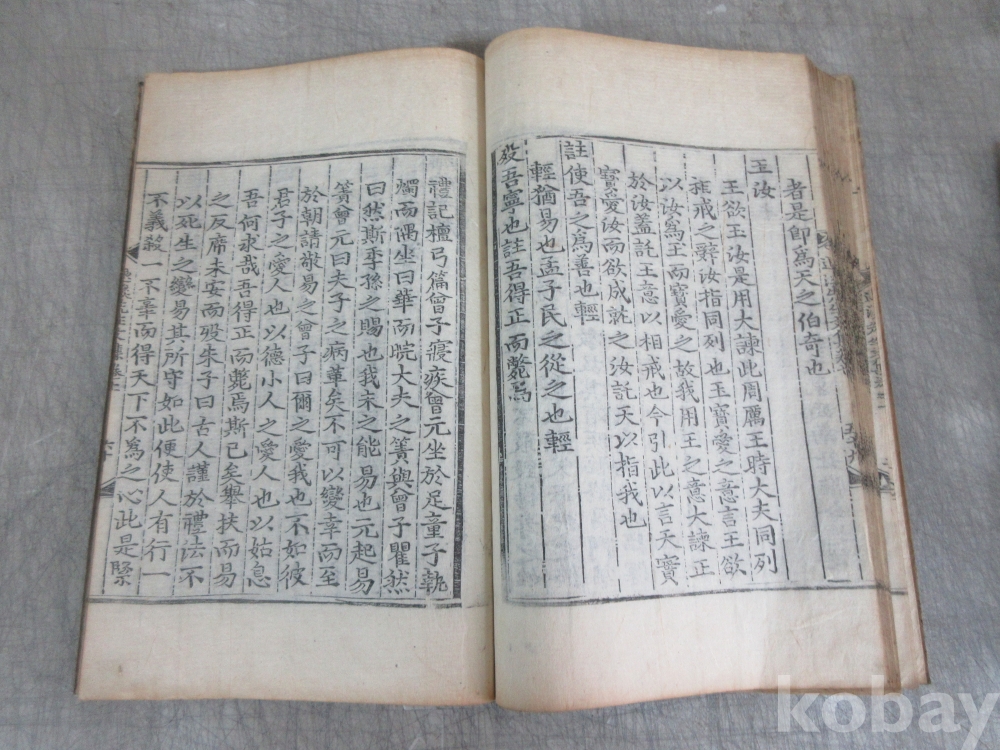 者是即爲天之伯奇也
玉汝
王欲玉汝是用大諫此周厲王時大夫同列
相戒之辭汝指同列也玉寶愛之意言王欲
以汝爲玉而寶愛之故我用王之意大諫正
於汝盖託王意以相戒也今引此以言天實
寶愛汝而欲成就之汝託天以指我也
註使吾之爲善也輕
輕猶易也孟子民之從之也輕
殁吾寧也註吾得正而斃焉
禮記檀弓篇曾子寢疾曾元坐於足童子執
燭而隅坐曰華而睆大夫之簀與曾子瞿然
曰然斯季孫之賜也我未之能易也元起易
簀曾元曰夫子之病革矣不可以變幸而至
於朝請敬易之曾子曰爾之愛我也不如彼
君子之愛人也以德小人之愛人也以姑息
吾何求哉吾得正而斃焉斯已矣擧扶而易
之反席未安而殁朱子曰古人謹於禮法不
以死生之變易其所守如此便使人有行一
不義殺一不辜而得天下不爲之心此是緊
kobay